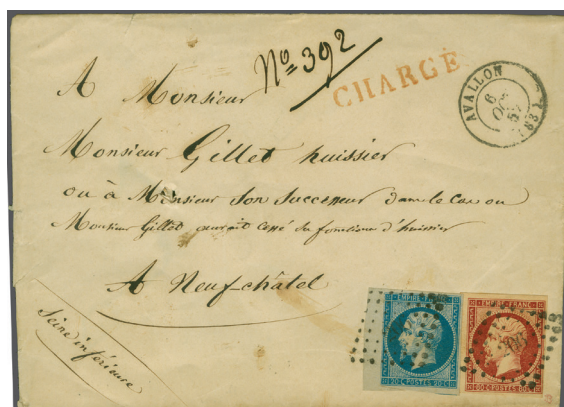 No 392
CHARGÉ
AVALLON
6
A Monsieur
Monsieur Gillet huissier
ou à Monsieur Son Successeur dans le Cas ou
Monsieur Gillet aurait Cessé Ses fonctions d'huissier
A Neuf-châtel
Seine inférieure
EMPIRE FRANC
20 C POSTES 20 C
EMPIRE FRANC
80 C POSTES 80 C